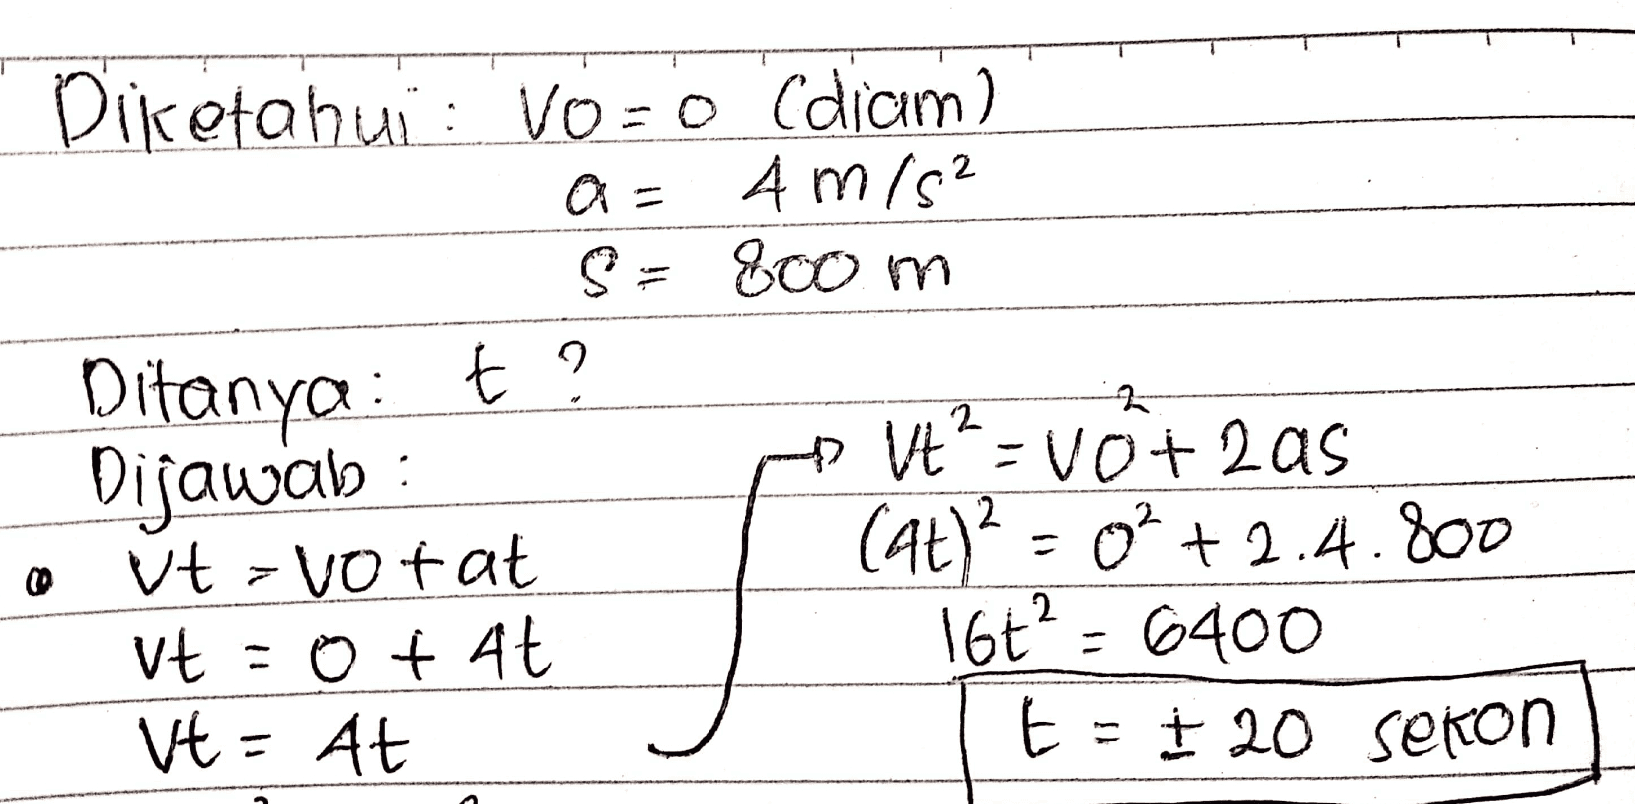 Diketahui : Vo = 0 (diam)
a = 4 m/s²
S = 800 m
Ditanya : t ?
Dijawab :
Vt = Vo + at
Vt = 0 + 4t
Vt = 4t
Vt² = Vo² + 2as
(4t)² = 0² + 2.4.800
16t² = 6400
t = ± 20 sekon